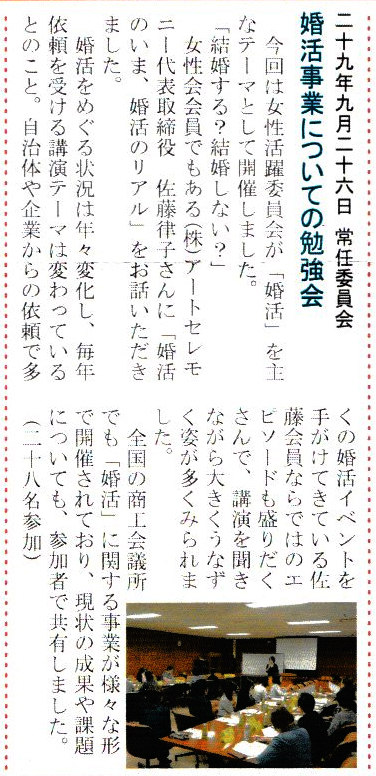 二十九年九月二十六日 常任委員会
婚活事業についての勉強会
今回は女性活躍委員会が、「婚活」を主
なテーマとして開催しました。
「結婚する？結婚しない？」
女性会会員でもある㈱アートセレモ
ニー代表取締役 佐藤律子さんに「婚活
のいま、婚活のリアル」をお話いただき
ました。
婚活をめぐる状況は年々変化し、毎年
依頼を受ける講演テーマは変わっている
とのこと。自治体や企業からの依頼で多
くの婚活イベントを
手がけてきている佐
藤会員ならではのエ
ピソードも盛りだく
さんで、講演を聞き
ながら大きくうなず
く姿が多くみられま
した。
全国の商工会議所
でも「婚活」に関する事業が様々な形
で開催されており、現状の成果や課題
についても、参加者で共有しました。
（二十八名参加）